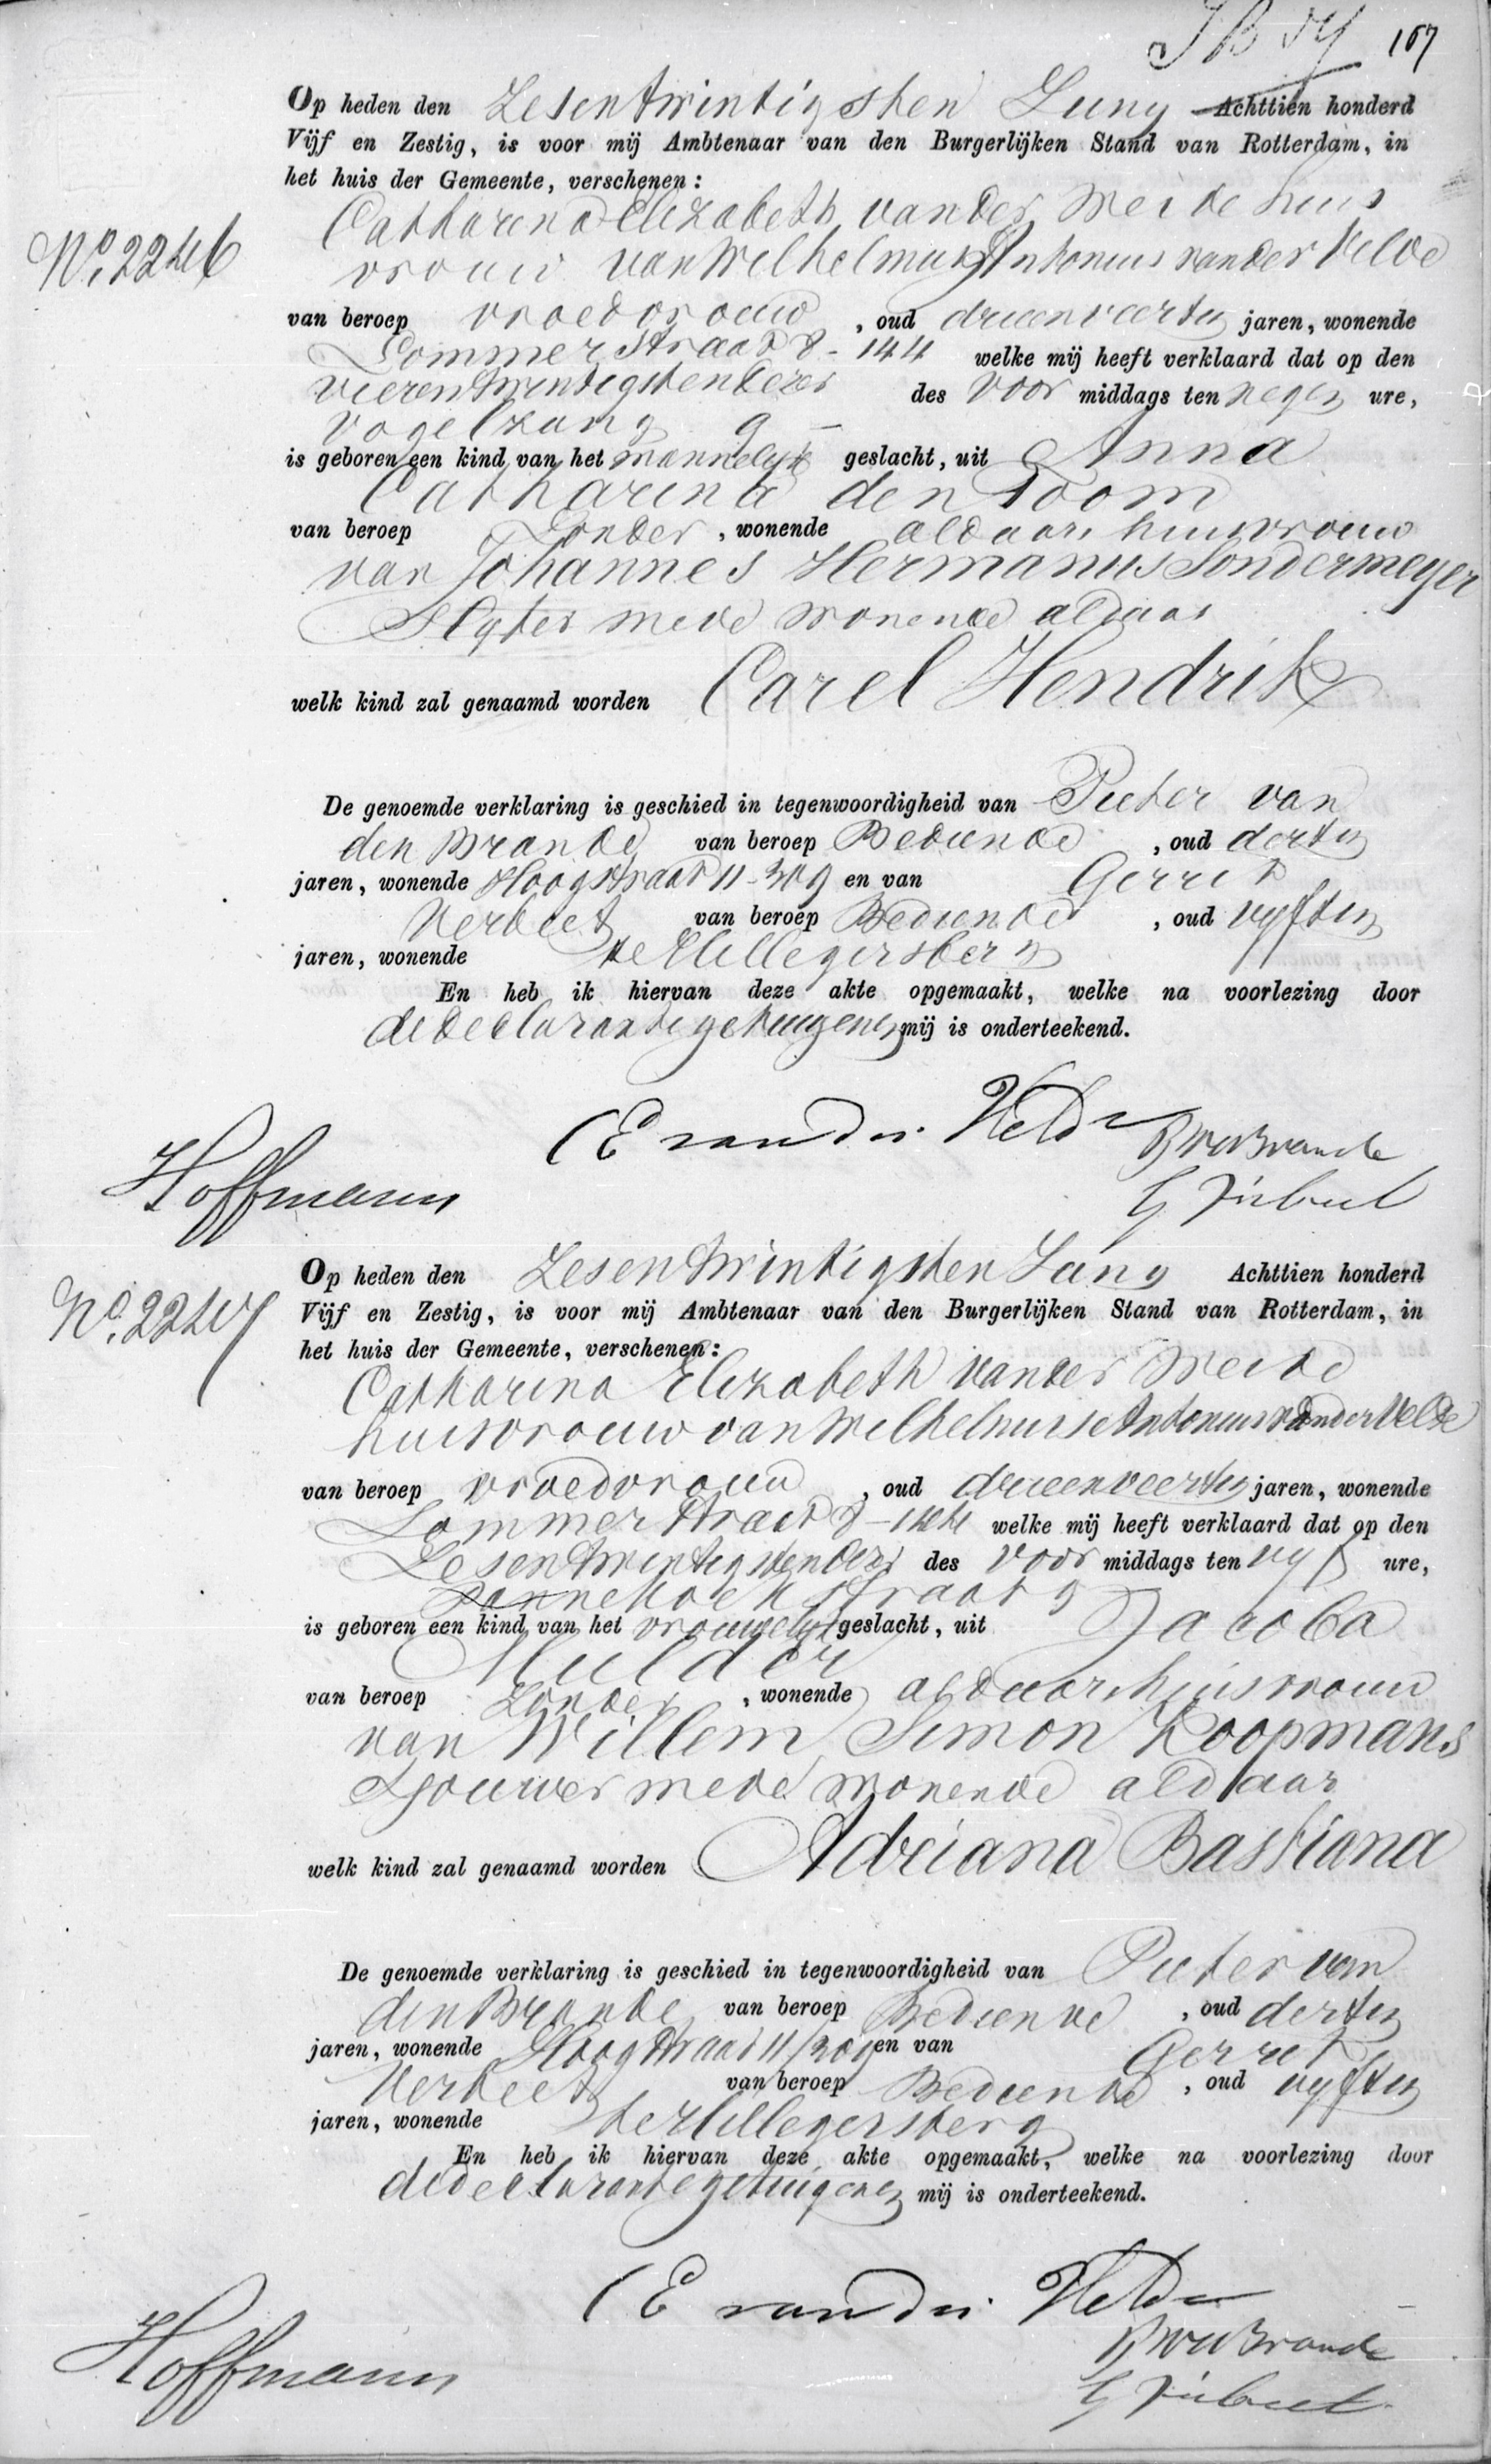 167
Op heden den Zesentwintigsten Juny Achttien honderd
Vijf en Zestig, is voor mij Ambtenaar van den Burgerlijken Stand van Rotterdam, in
het huis der Gemeente, verschenen:
Catharina Elizabeth van der Meide huis
No. 2246
vrouw van Wilhelmus Antonius van der Velde
van beroep vroedvrouw, oud drieenveertig jaren, wonende
Lommerstraat 8-144 welke mij heeft verklaard dat op den
vierentwintigsten dezer des voor middags ten negen ure,
Vogelzang 9
is geboren een kind van het mannelijk geslacht, uit Anna
Catharina den Toom
van beroep Zonder, wonende aldaar, huisvrouw
van Johannes Hermanus Sondermeyer
Slyter mede wonende aldaar
welk kind zal genaamd worden Carel Hendrik
De genoemde verklaring is geschied in tegenwoordigheid van Pieter van
den Brande van beroep Bediende, oud dertig
jaren, wonende Hoogstraat 11-309 en van Gerrit
Verbeet van beroep Bediende, oud vyftig
jaren, wonende te Hillegersberg
En heb ik hiervan deze akte opgemaakt, welke na voorlezing door
de declarante getuigen en mij is onderteekend.
CE van der Velde
PvdBrande
Hoffmann
G Verbeet
Op heden den Zesentwintigsten Juny Achttien honderd
No. 2247
Vijf en Zestig, is voor mij Ambtenaar van den Burgerlijken Stand van Rotterdam, in
het huis der Gemeente, verschenen:
Catharina Elizabeth van der Meide
huisvrouw van Wilhelmus Antonius van der Velde
van beroep vroedvrouw, oud drieenveertig jaren, wonende
Lommerstraat 8-144 welke mij heeft verklaard dat op den
Zesentwintigsten dezer des voor middags ten vyf ure,
Pannekoekstraat 9
is geboren een kind van het vrouwelyk geslacht, uit Jacoba
Mulder
van beroep Zonder, wonende aldaar huisvrouw
van Willem Simon Koopmans
Sjouwer mede wonende aldaar
welk kind zal genaamd worden Adriana Bastiana
De genoemde verklaring is geschied in tegenwoordigheid van Pieter van
den Brande van beroep Bediende, oud dertig
jaren, wonende Hoogstraat 11/309 en van Gerrit
Verbeet van beroep Bediende, oud vyftig
jaren, wonende te Hillegersberg
En heb ik hiervan deze akte opgemaakt, welke na voorlezing door
de declarante getuigen en mij is onderteekend.
CE van der Velde
PvdBrande
Hoffmann
G Verbeet